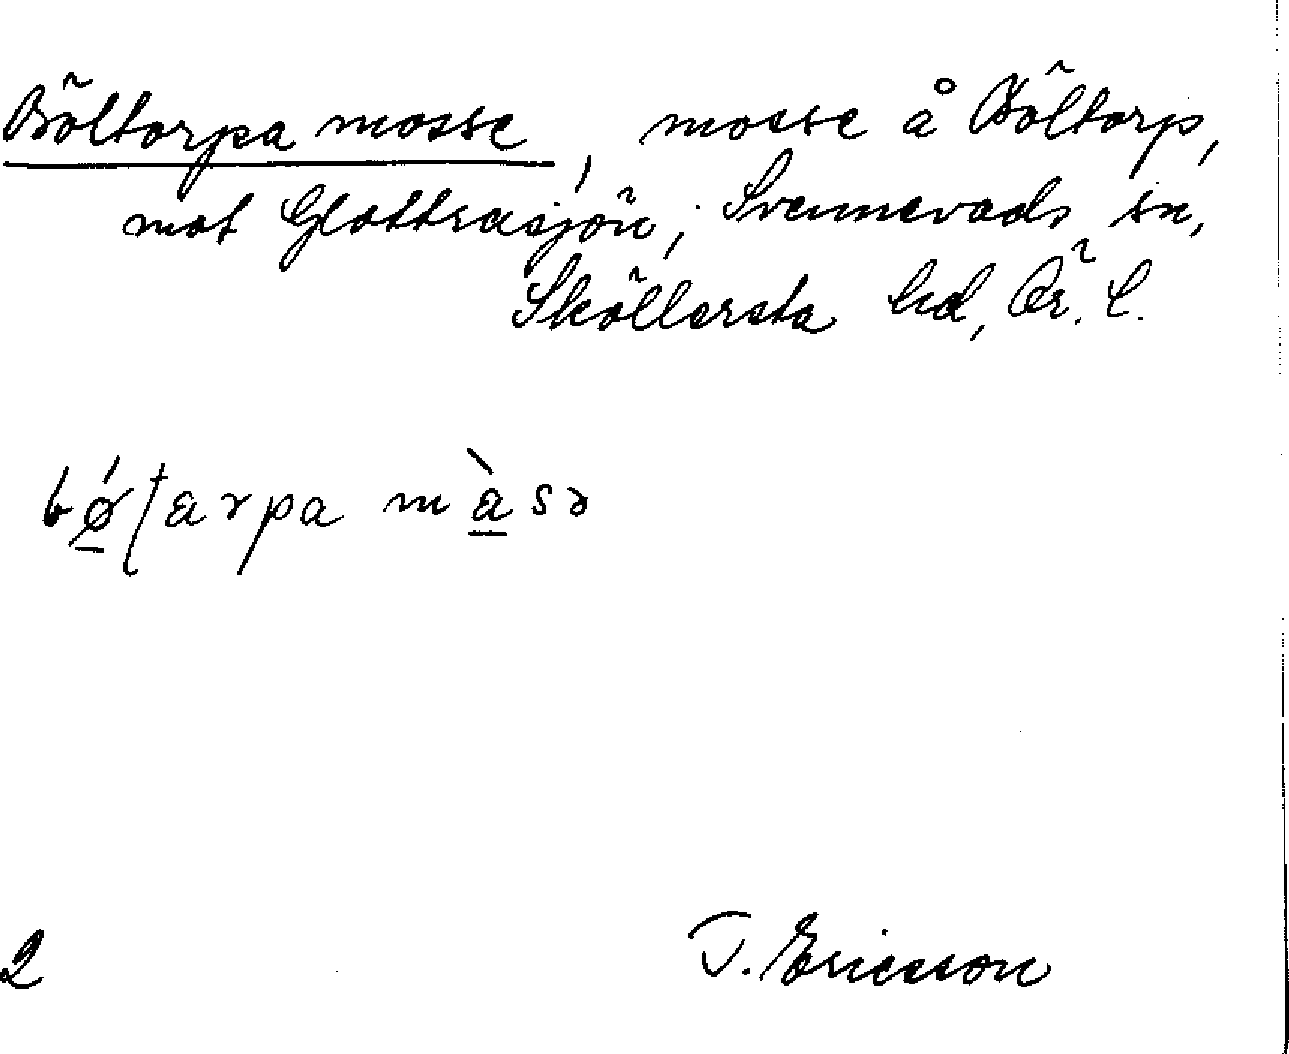 Böltorpa mosse, mosse å Böltorp,
mot Glottrasjön, Svennevads sn,
Sköllersta hd, Ör. l.
bǿʈarpa màsə
2 T. Ericsson